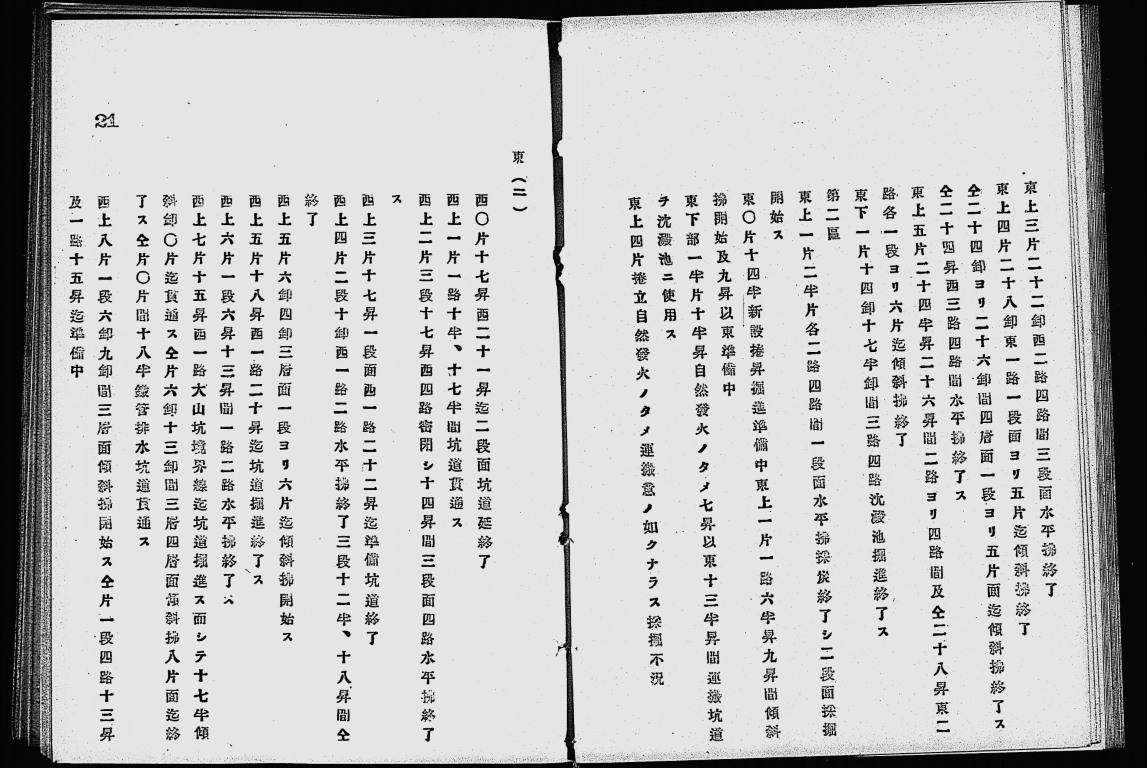 東上三片二十二卸西二路四路間三段面水平掃終了
東上四片二十八卸東一路一段面ヨリ五片迄傾斜掃終了
仝二十四卸ヨリ二十六卸間四層面一段ヨリ五片面迄傾斜掃終了ス
仝二十四昇西三路四路間水平掃終了ス
東上五片二十四半昇二十六昇間二路ヨリ四路間及仝二十八昇東二
路各一段ヨリ六片迄傾斜掃終了
東下一片十四卸十七半卸間三路四路沈澱池掘進終了ス
第二區
東上一片二半片各二路四路間一段面水平掃採炭終了シ二段面採掘
開始ス
東〇片十四半新設捲昇掘進準備中東上一片一路六半昇九昇間傾斜
掃開始及九昇以東準備中
東下部一半片十半昇自然發火ノタメ七昇以東十三半昇間運搬坑道
ヲ沈澱池ニ使用ス
東上四片捲立自然發火ノタメ運搬意ノ如クナラス採掘不況
東(二)
西〇片十七昇西二十一昇迄二段面坑道延終了
西上一片一路十半、十七半間坑道貫通ス
西上二片三段十七昇西四路密閉シ十四昇間三段面四路水平掃終了
ス
西上三片十七昇一段面西一路二十二昇迄準備坑道終了
西上四片二段十卸西一路二路水平掃終了三段十二半、十八昇間仝
終了
西上五片六卸四卸三層面一段ヨリ六片迄傾斜掃開始ス
西上五片十八昇西一路二十昇迄坑道掘進終了ス
西上六片一段六昇十三昇間一路二路水平掃終了ス
西上七片十五昇西一路大山坑境界線迄坑道掘進ス而シテ十七半傾
斜卸〇片迄貫通ス仝片六卸十三卸間三層四層面傾斜掃八片面迄終
了ス仝片〇片間十八半鐵管排水坑道貫通ス
西上八片一段六卸九卸間三層面傾斜掃開始ス仝片一段四路十三昇
及一路十五昇迄準備中
21